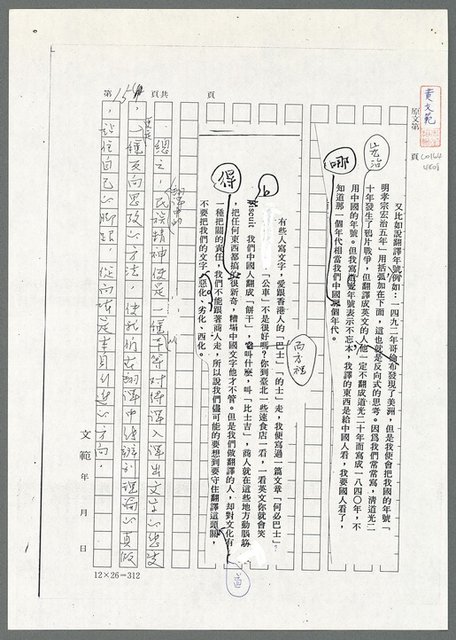 原文第
頁
黃文範
又比如說翻譯年號例如:一四九二年哥倫布發現了美洲，但是我便會把我國的年號「
明孝宗宏治五年」用括弧加在下面，這也就是反向式的思考。因為我們常常寫，清道光二
十年發生了鴉片戰爭，但翻譯成英文的人他一定不翻成道光二十年而寫成一八四〇年，不
用中國的年號。但我寫這麼年號表示不忘本，我譯的東西是給中國人看，我要國人看了，
知道那一個年代相當我們中國個年代。
宏治
哪
有些人寫文字，愛跟香港人的「巴士」「的士」走，我便寫過一篇文章「何必巴士」。
「公車」不是很好嗎？你到臺北一些速食店一看，一看英文你就會笑
Biscuit 我們中國人翻成「餅干」，它叫什麼，叫「比士吉」，商人就在這些地方動腦筋
，把任何東西都搞得很新奇，糟塌中國文字他才不管。但是我們做翻譯的人，却對文化有
一種把關的責任，我們不能跟著商人走，所以說我們儘可能的要想到要守住翻譯這道關，
不要把我們的文字惡化、劣化、西化。
b
得
而方程
頁
共
頁
第
15
總之，民族精神便是一個平等對待深入深出文字的思支
翻譯中的
，一種反向思考的方法，使我們在翻譯中能辨別理論的真假
，站住自己的腳跟，從而確定主頁
的方向。
文範 年 月 日
12×26=312